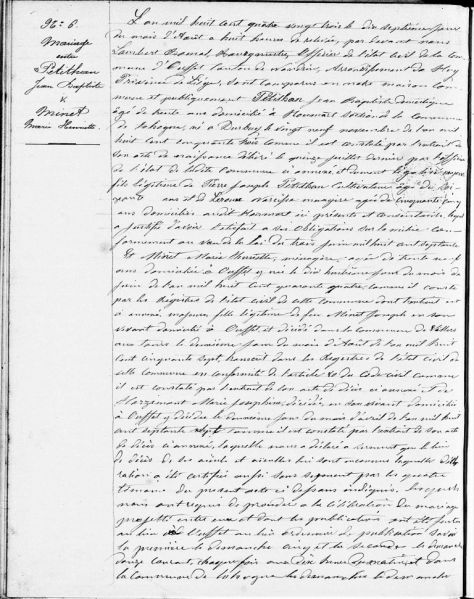 N° 6.
Mariage
entre
Petithan
Jean Baptiste
&
Minet
Marie Henriette
L'an mil huit cent quatre vingt trois le dix septième jour
du mois d'Août à huit heures de relevée, par devant nous
Lambert Bourgmestre, Officier de l'état civil de la Com-
mune d'Ouffet Canton de Nandrin, Arrondissement de Huy
Province de Liège, sont comparus en notre maison Com-
mune et publiquement Petithan Jean Baptiste domestique
âgé de trente ans domicilié à section de la commune
de né à Durbuy le vingt neuf novembre de l'an mil
huit cent cinquante trois comme il est constaté par l'extrait de
son acte de naissance délivré le quinze juillet dernier par l'officier
de l'état de ladite Commune ci annexé et dument légalisé majeur
fils légitime de Pierre Joseph Petithan Cultivateur âgé de soi-
xante ans et de Leroux ménagère âgée de cinquante cinq
ans domiciliés audit ici présents et consentants, lequel
a justifié d'avoir satisfait à ses obligations sur la milice con-
formément au vœu de la loi du trois juin mil huit cent septante
Et Minet Marie Henriette, ménagère, âgée de trente neuf
ans domiciliée à Ouffet y née le dix huitième jour du mois de
juin de l'an mil huit cent quarante quatre, comme il conste
par les Régistres de l'état civil de cette commune dont l'extrait est
ci annexé, majeure, fille légitime de feu Minet Joseph en son
vivant domicilié à Ouffet et décédé dans la Commune de Villers
aux tours le douzième jour du mois d'Août de l'an mil huit
cent cinquante sept, transcrit dans les Registres de l'état civil de
cette Commune en conformité de l'article 80 du Code civil comme
il est constaté par l'extrait de son acte de décès ci annexé, et de
Marie Joséphine, décédée, en son vivant domiciliée
à Ouffet y décédée le douzième jour du mois d'avril de l'an mil huit
cent septante sept comme il est constaté par l'extrait de son acte
de décès ci annexé, laquelle nous a déclaré à serment que le lieu
de décès de ses aïeuls et aïeulles lui sont inconnus laquelle décla-
ration a été certifiée aussi sous serment par les quatre
témoins du présent acte ci dessous indiqués. Lesquels
nous ont requis de procéder à la célébration du mariage
projetté entre eux et dont les publications ont été faites
au lieu d'Ouffet au lieu ordinaire de publication savoir
la première le dimanche cinq et la seconde le dimanche
douze courant, chaque fois aux dix heures du matin et dans
la Commune de les dimanches